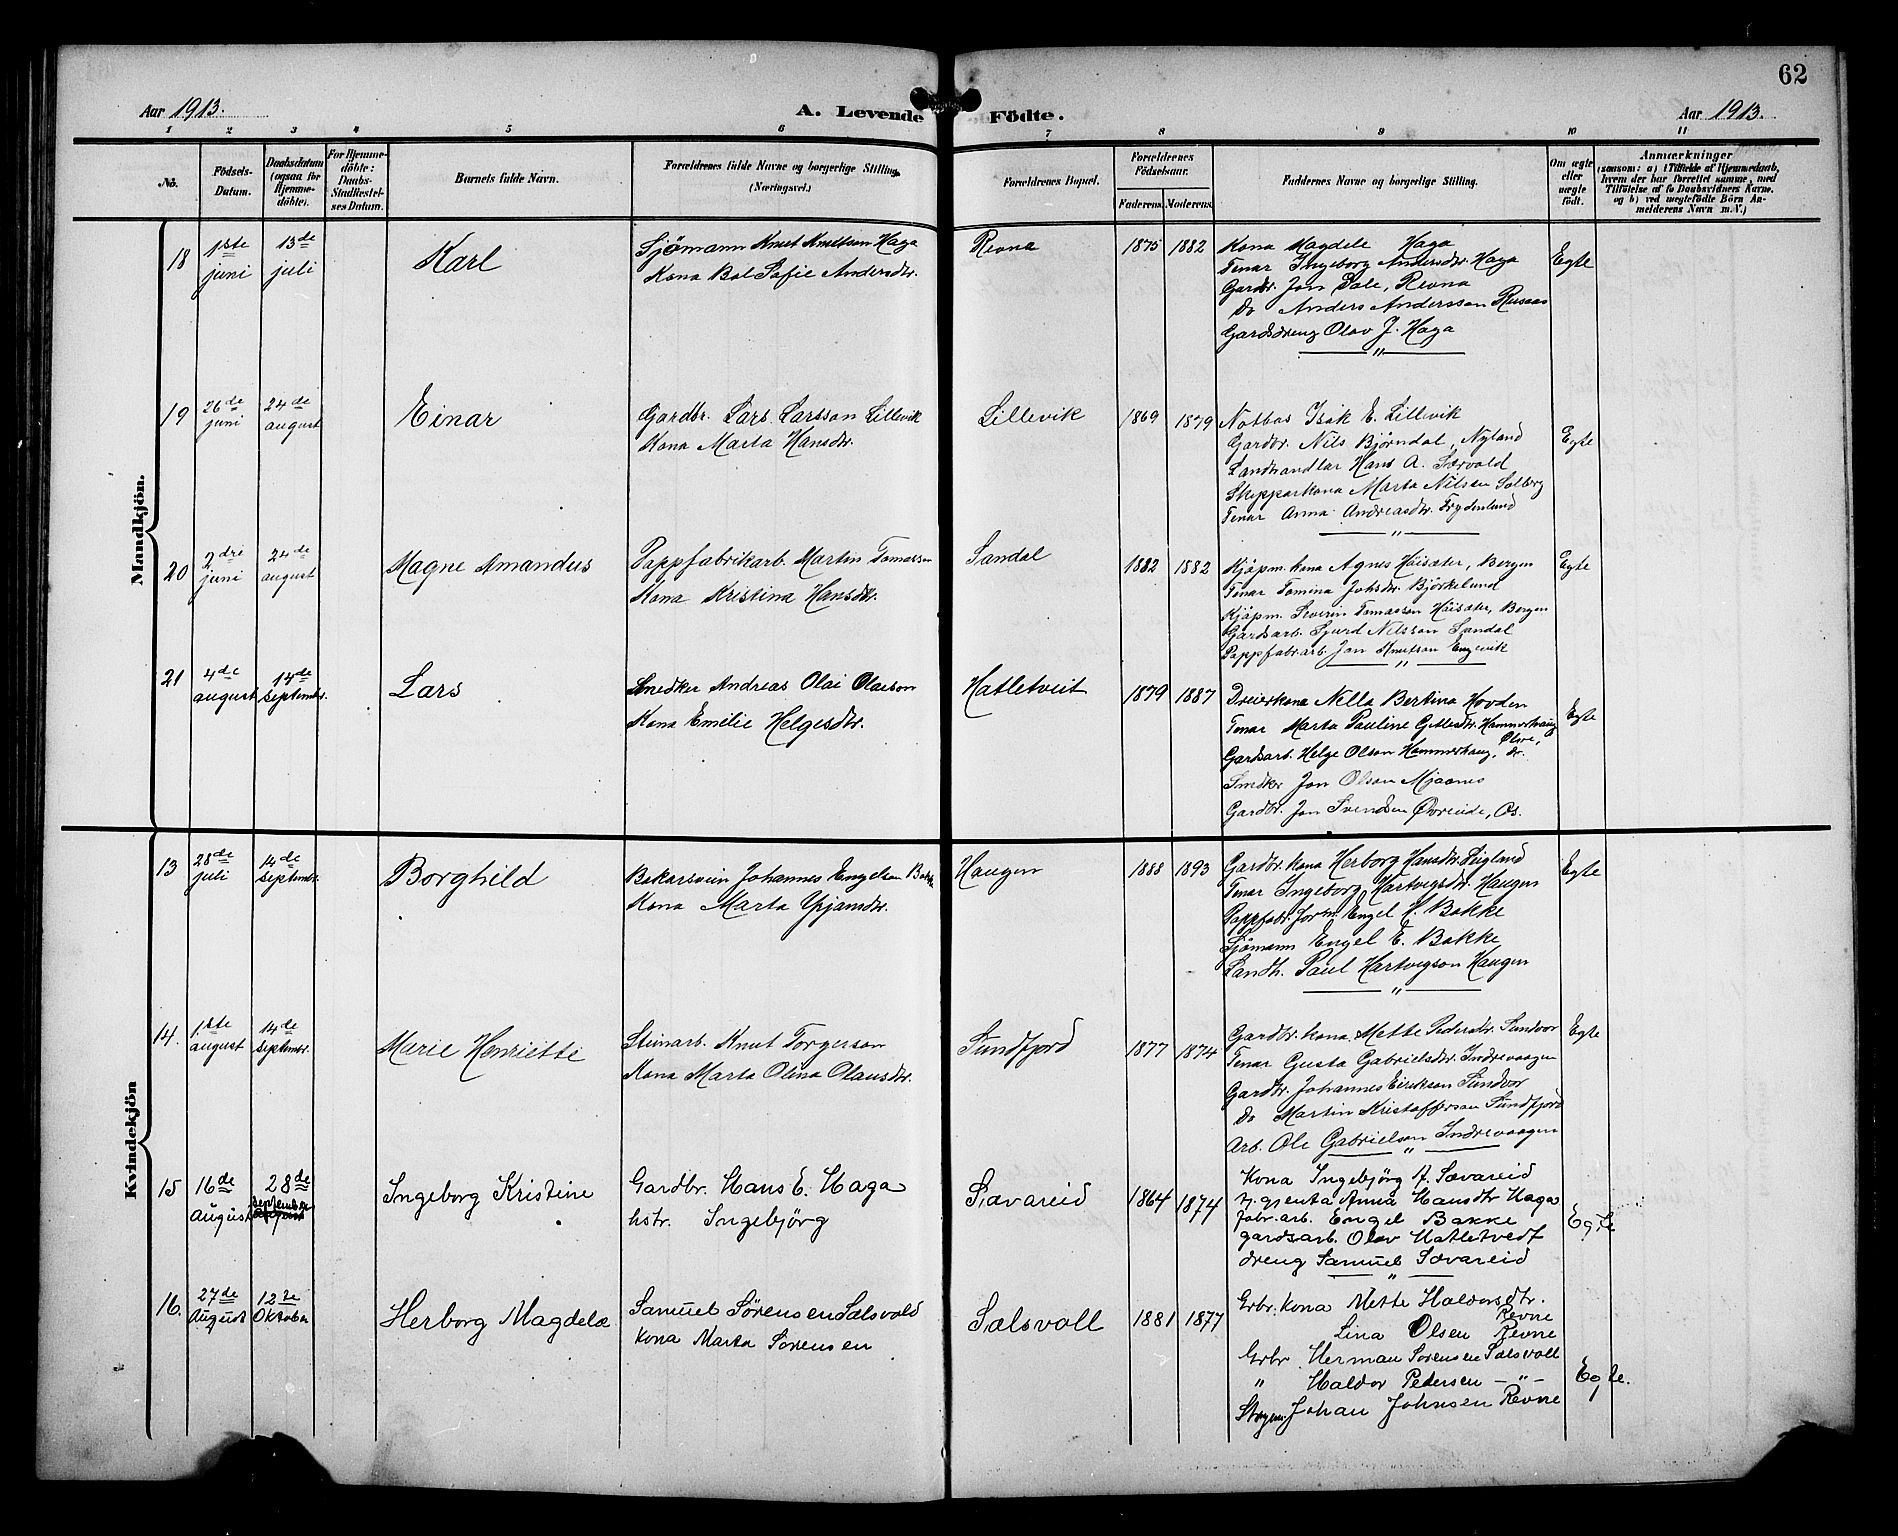 62
Aar 1913.
A. Levende Födte.
Aar 1913.
1 2 3 4 5 6 7 8 9 10 11
No.
Födsels-Datum.
Daabsdatum (ogsaa for Hjemmedöbte).
For Hjemmedöbte: Daabs-Stadfæstelses Datum.
Barnets fulde Navn.
Forældrenes fulde Navne og borgerlige Stilling. (Næringsvei.)
Forældrenes Bopæl.
Forældrenes Födselsaar.
Faderens. Moderens.
Faddernes Navne og borgerlige Stilling.
Om ægte eller uægte födt.
Anmærkninger
(saasom: a) i Tilfælde af Hjemmedaab, hvem der har forrettet samme, med Tilföielse af to Daabsvidners Navne. og b) ved uægtefödte Börn Anmelderens Navn m.V.)
Mandkjön.
18 1ste juni 13de juli Karl
Sjömann Knut Knutson Haga
Kona Bol Sofie Andersdtr.
Revna 1875 1882
Kona Magdele Haga
Tenar Ingeborg Andersdtr. Haga
Gardbr. Jon Dale, Revna
Do Anders Andersson Rusaas
Gardsdreng Olav J. Haga
Egte
19 26de juni 24de august Einar
Gardbr. Lars Larsson Lillevik
Kona Marta Hansdtr.
Lillevik 1869 1879
Notbas Isak E. Lillevik
Gardbr. Nils Björndal, Nyland
Landhandlar Hans A. Sævold
Skipparkona Marta Nilsen Solborg
Tenar Anna Andreasdtr. Frydenlund
Egte
20 2dre juni 24de august Magne Amandus
Pappfabrikarb. Martin Tomassen
Kona Kristina Hansdtr.
Sandal 1882 1882
Kjöpm. kona Agnes Höisæter, Bergen
Tenar Tomina Johsdtr. Björkelund
Kjöpm. Severin Tomasson Höisæter, Bergen
Gardsarb. Sjurd Nilsson Sandal
Pappfabr.arb. Jon Knutson Engevik
Egte
21 4de august 14de septembr. Lars
Snedker Andreas Olai Olaison
Kona Emilie Helgesdtr.
Hatletveit 1879 1887
Dreierkona Nella Bertina Hovden
Tenar Marta Pauline Gitlesdtr. Hammerhaug
Gardsarb. Helge Olson Hammerhaug, Ølve, do.
Smedkr Jon Olson Mjaanes
Gardbr. Jon Svendsen Øvreeide, Os.
Egte
Kvindekjön
13 28de juli 14de septembr. Borghild
Bakarsvein Johannes Engelsen Bakke
Kona Marta Ørjansdtr.
Haugen 1888 1893
Gardbr. kona Herborg Hansdtr. Leigland
Tenar Ingeborg Hartvigsdtr. Haugen
Pappfabr. form. Engel H. Bakke
Sjömann Engel E. Bakke
Landh. Paul Hartvigson Haugen
Egte
14. 1.ste august 14de septembr. Marie Henriette
Steinarb. Knut Torgerson
Kona Marta Olina Olausdtr.
Sundfjord 1877 1874
Gardbr. kona, Mette Pedersdtr. Sundvor
Tenar Gusta Gabrielsdtr. Indrevaagen
Gardbr. Johannes Eirikson Sundvor
Do Martin Kristofferson Sundfjord
Arb. Ole Gabrielson Indrevaagen
Egte
15 16de August 28de september Ingeborg Kristine
Gardbr. Hans E. Haga
hstr. Ingebjörg
Sævareid 1864 1874
Kona Ingebjörg A. Sævareid
tj.gjenta Anna Hansdtr Haga
fabr.arb. Engel Bakke
gardsarb. Olav Hatletvedt
dreng Samuel Sævareid
Egte
16. 27de August 12te Oktober Herborg Magdela
Samuel Sörensen Salsvold
Kona Marta Sorensen
Salsvoll 1881 1877
Grbr. kona Mette Haldorsdtr. Revne
Lina Olsen Revne
Grbr. Herman Sorensen Salsvoll
" Haldor Pedersen — " —
Johan Johnsen Revne
Egte.